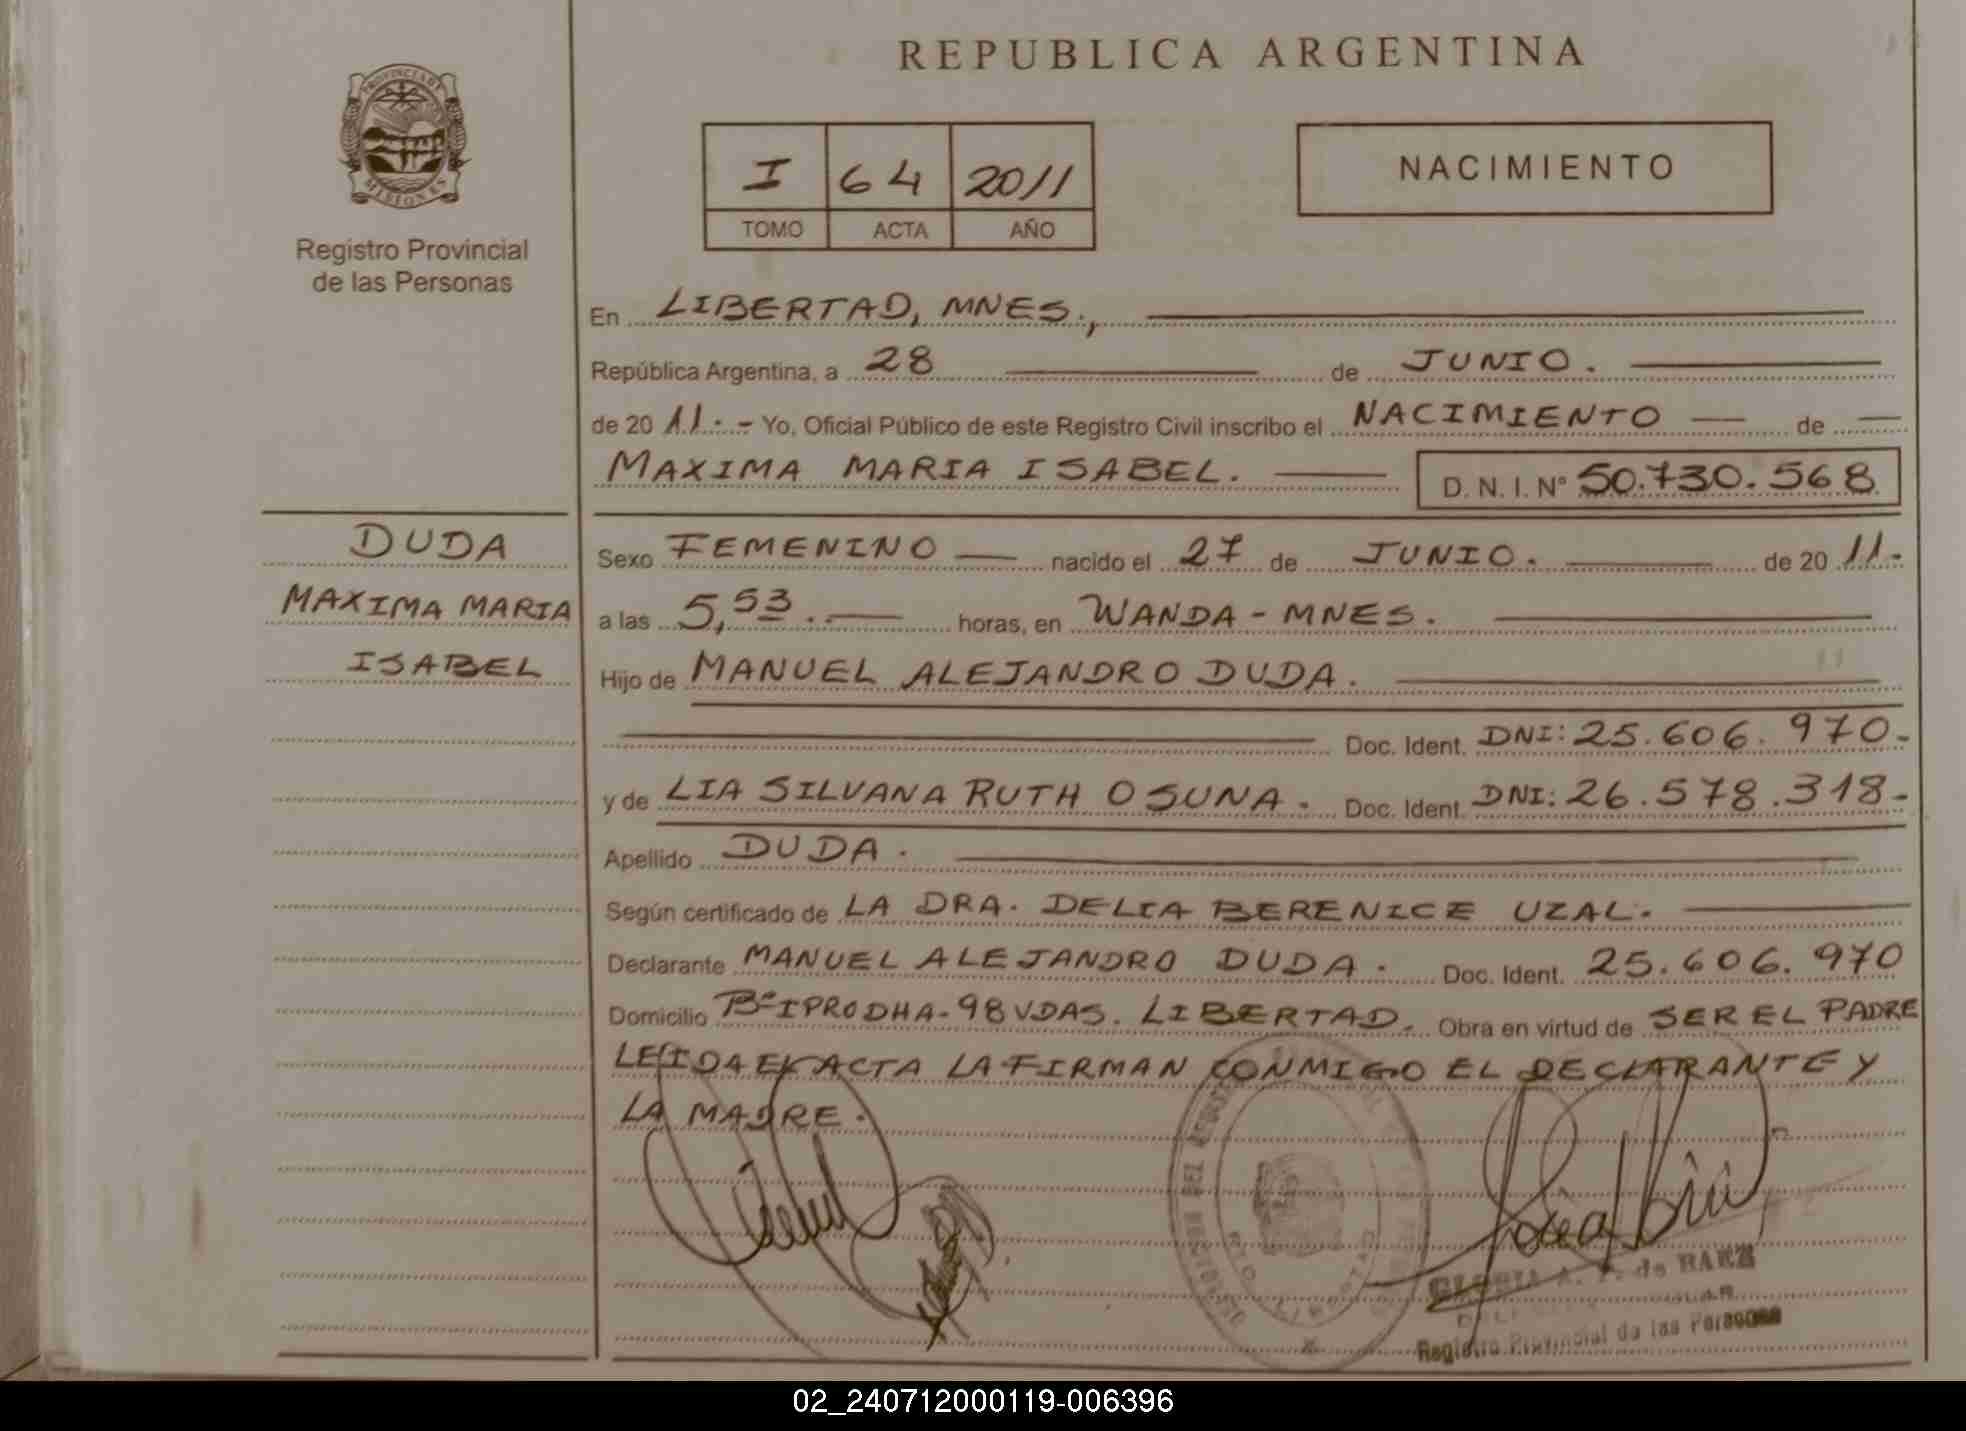 REPUBLICA ARGENTINA
PROVINCIA DE
MISIONES
Registro Provincial
de las Personas
I 64 2011
TOMO ACTA AÑO
NACIMIENTO
En LIBERTAD, MNES.,
República Argentina, a 28 de JUNIO.
de 20 11.- Yo, Oficial Público de este Registro Civil inscribo el NACIMIENTO — de —
MAXIMA MARIA ISABEL. — D. N. I. N° 50.730.568
DUDA
MAXIMA MARIA
ISABEL
Sexo FEMENINO — nacido el 27 de JUNIO. — de 20 11.-
a las 5,53.- horas, en WANDA - MNES.
Hijo de MANUEL ALEJANDRO DUDA.
Doc. Ident. DNI: 25.606.970-
y de LIA SILVANA RUTH OSUNA. Doc. Ident. DNI: 26.578.318-
Apellido DUDA.
Según certificado de LA DRA. DELIA BERENICE UZAL.
Declarante MANUEL ALEJANDRO DUDA. Doc. Ident. 25.606.970
Domicilio B° IPRODHA-98 VDAS. LIBERTAD. Obra en virtud de SER EL PADRE
LEIDA EL ACTA LA FIRMAN CONMIGO EL DECLARANTE Y
LA MADRE.
GLORIA A. F. de BAEZ
Registro Provincial de las Personas
02_240712000119-006396